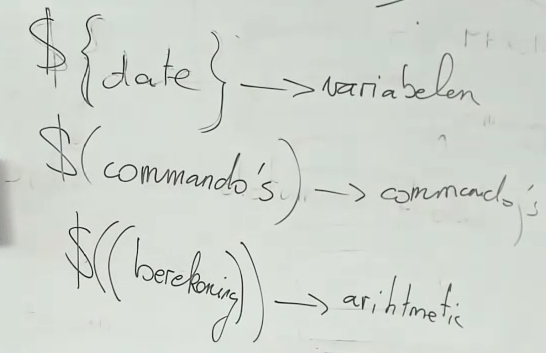 ${date} → variabelen
$(commando's) → commando's
$((berekening)) → arihtmetic